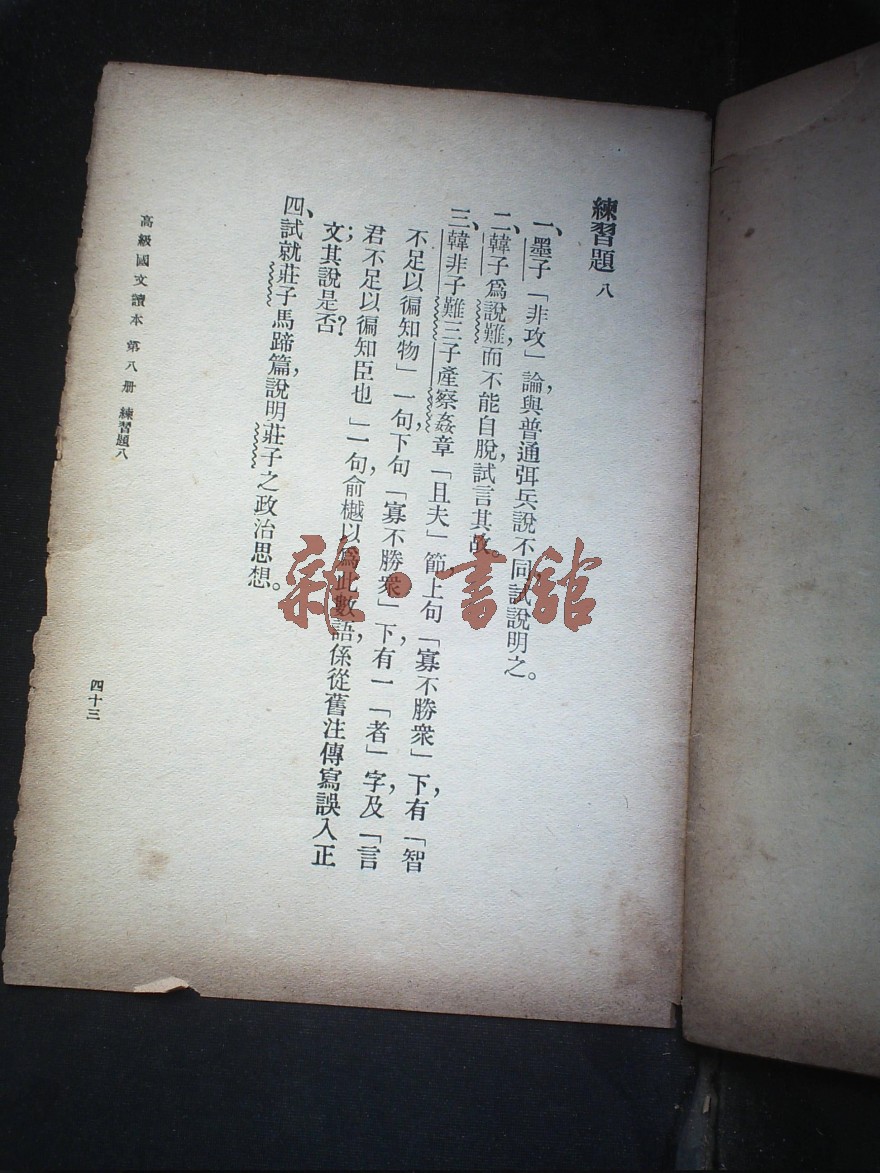 練習題 八
一、墨子「非攻」論，與普通弭兵說不同，試說明之。
二、韓子爲說難，而不能自脫，試言其故。
三、韓非子難三子產察姦章「且夫」節，上句「寡不勝衆」下，有「智
不足以徧知物」一句，下句「寡不勝衆」下，有一「者」字，及「言
君不足以徧知臣也」一句，俞樾以爲此數語，係從舊注傳寫誤入正
文；其說是否？
四、試就莊子馬蹄篇，說明莊子之政治思想。
高級國文讀本 第八册 練習題八
四十三
雜·書館